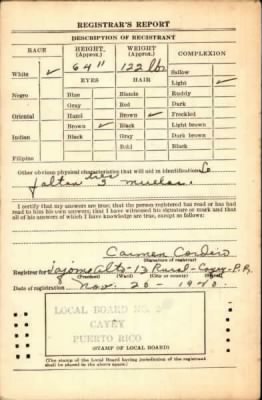 REGISTRAR'S REPORT
DESCRIPTION OF REGISTRANT
RACE
HEIGHT (Approx.)
WEIGHT (Approx.)
COMPLEXION
White ✓
64"
122 lbs
Sallow
EYES
HAIR
Light ✓
Negro
Blue
Blonde
Ruddy
Gray
Red
Dark
Oriental
Hazel
Brown ✓
Freckled
Brown ✓
Black
Light brown
Indian
Black
Gray
Dark brown
Bald
Black
Filipino
Other obvious physical characteristics that will aid in identification Le
faltan tres 3 muelas.
I certify that my answers are true; that the person registered has read or has had
read to him his own answers; that I have witnessed his signature or mark and that
all of his answers of which I have knowledge are true, except as follows:
Carmen Cordero
(Signature of registrar)
Registrar for Jajome Alto - 13 Rural - Cayey - P.R.
(Precinct) (Ward) (City or county) (State)
Date of registration Nov. 20 - 1940.
LOCAL BOARD NO.
CAYEY
PUERTO RICO
(STAMP OF LOCAL BOARD)
(The stamp of the Local Board having jurisdiction of the registrant
shall be placed in the above space.)